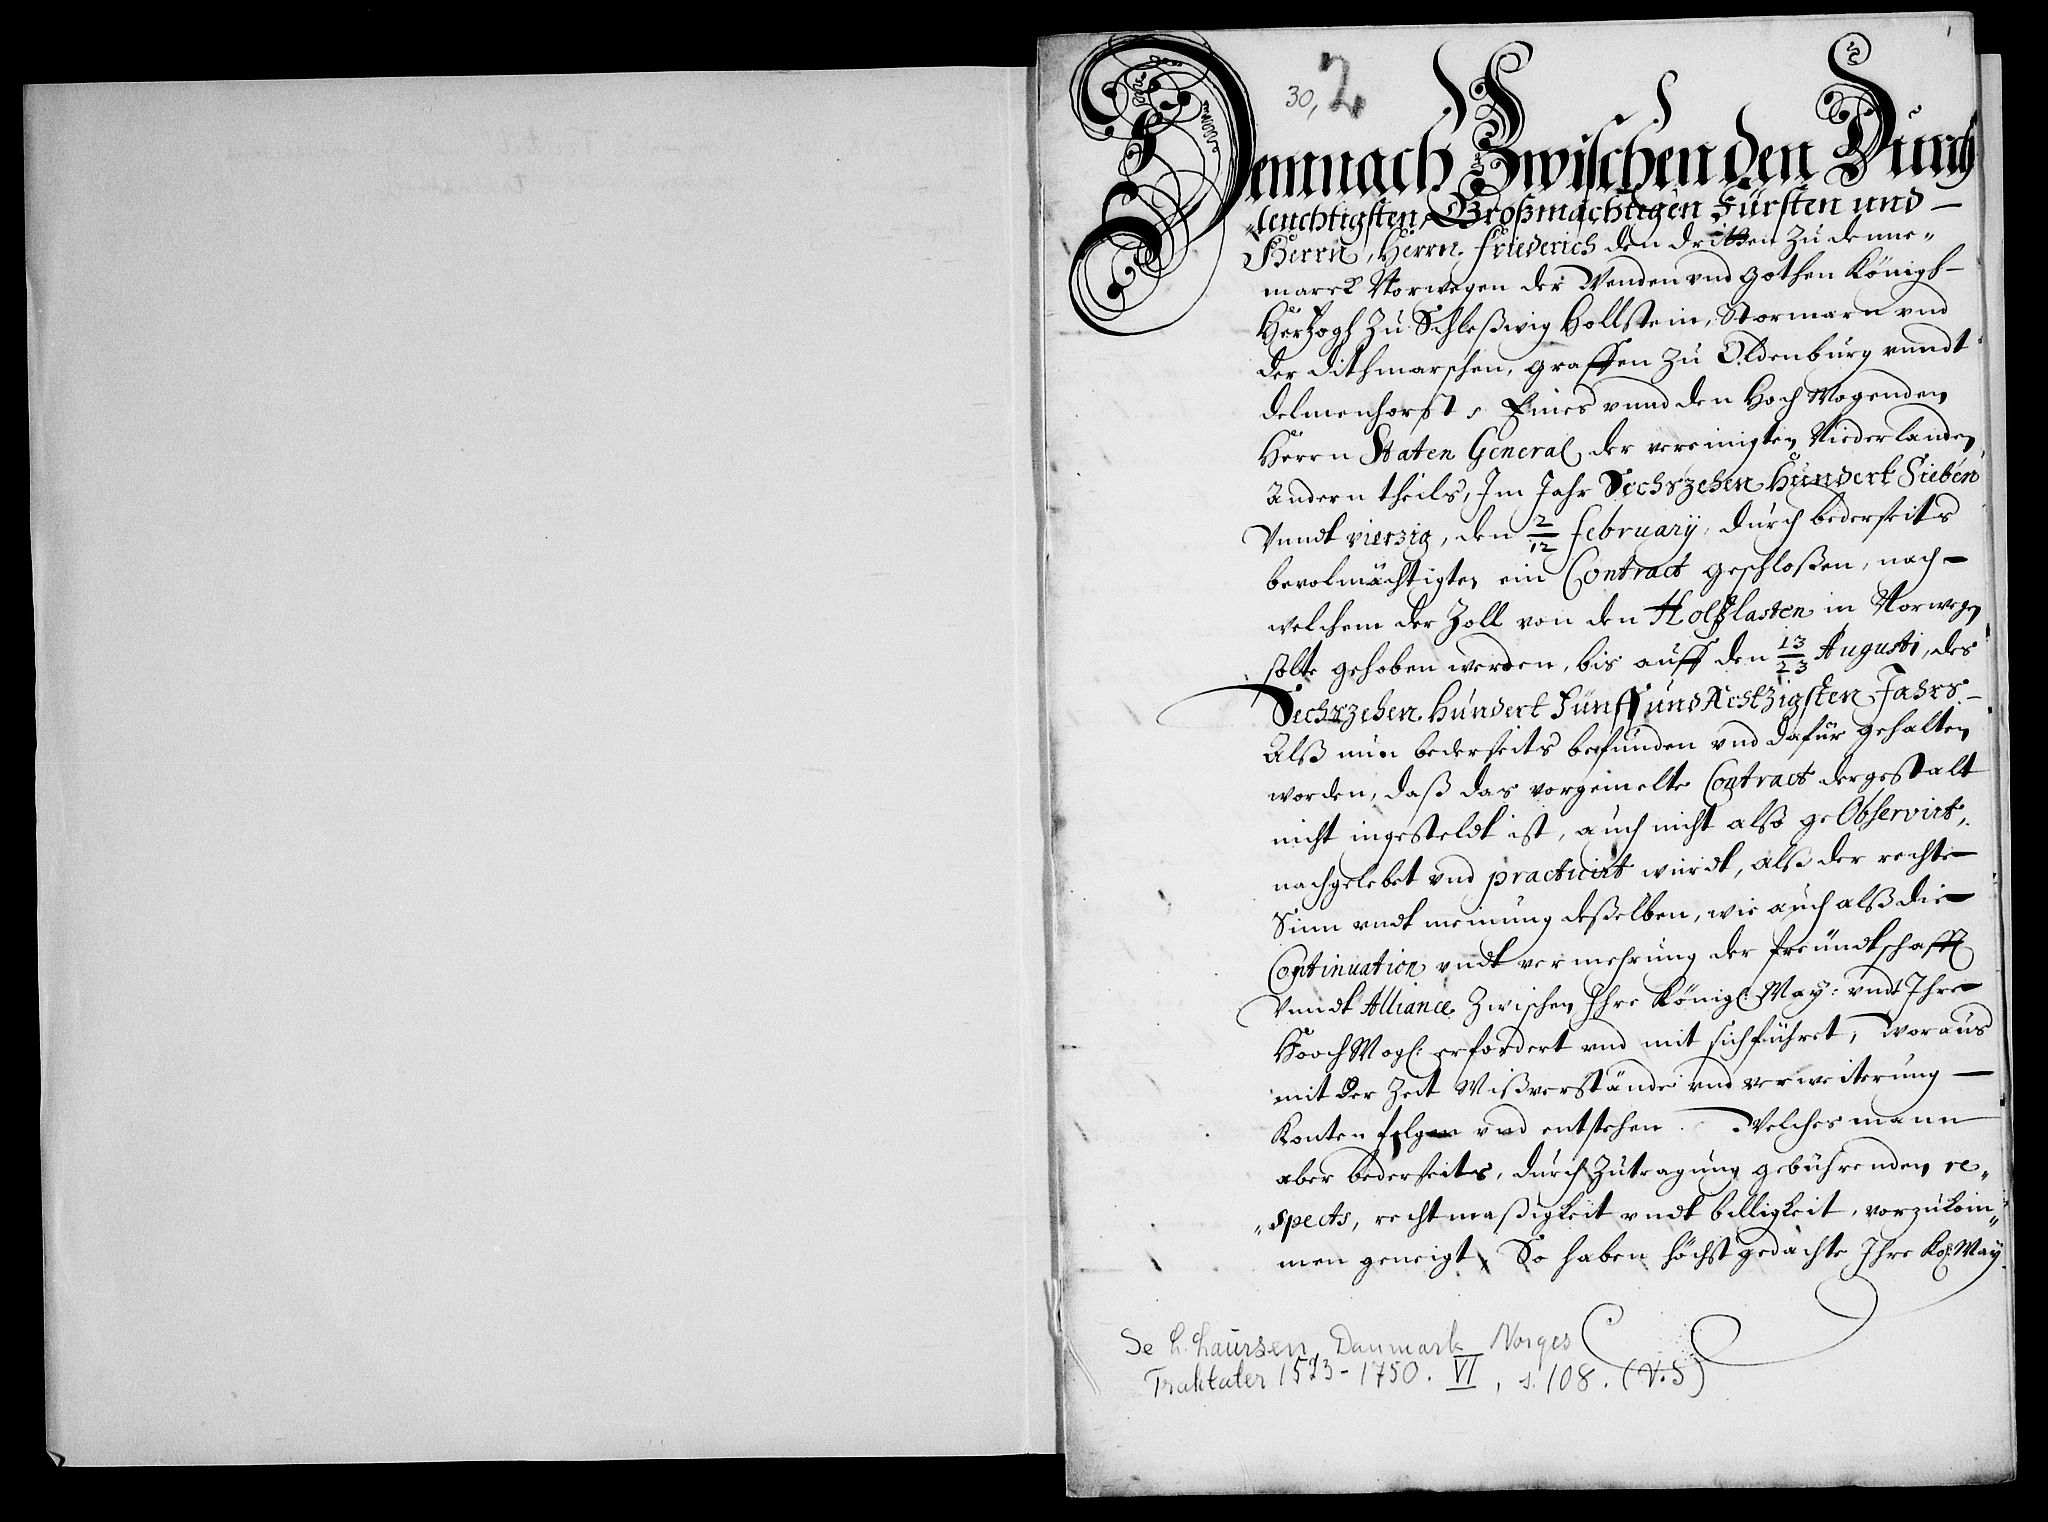 30, 2
1
Demnach Zwischen den Durch
leuchtigsten, Großmächtigen Fürsten und
Herrn, Herrn Friederich den dritten Zu denne-
marck Norwegen der Wenden und Gothen Königh
Hertzogh Zu Schleßwig Hollstein, Stormarn und
der Dithmarschen, graffen zu Oldenburg unndt
delmenhorst, Eines unnd den Hoch Mogenden
Herrn Staten General der vereinigten Niederlanden
andern theils, Im Jahr Sechszehen Hundert Sieben
Unndt vierzig, den 2/12 februarij, durch bederseits
bevolmächtigten ein Contract geschloßen, nach
welchem der Zoll von den Holtzlasten in Norwegen
solte gehoben werden, bis auff den 13/23 Augusti, des
Sechszehen Hundert Fünff und Achtzigsten Jahrs
Alß nun bederseits befunden und dafür gehalten
worden, daß das vorgemelte Contract dergestalt
nicht ingesteldt ist, auch nicht also geObservirt,
nachgelebet und practicirt wurdt, alß der rechte
Sinn undt meinung deßelben, wie auch alß die
Continuation undt vermehrung der freundtschafft
Unndt Alliance Zwischen Ihre Königl: May: undt Ihre
Hooch Mog: erfordert und mit sich führet, woraus
mit der Zeit Mißverstände und verweiterung
Konten folgen und entstehen. Welches mann
aber bederseits, durch Zutragung gebührenden re-
spects, rechtmaßigkeit undt billigkeit, vorzukom-
men geneigt, So haben höchst gedachte Ihre Kö: May
Se L. Laursen, Danmark Norges
Traktater 1523-1750. VI, s. 108. (V.S)